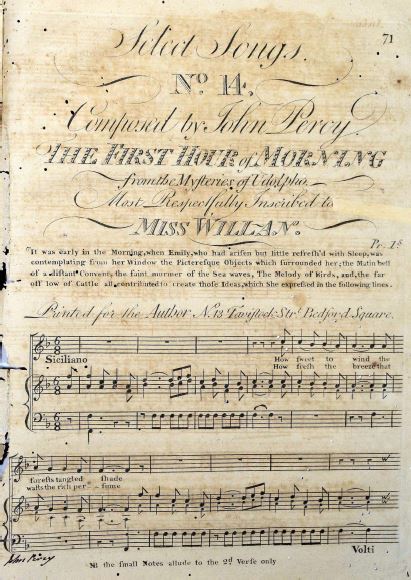 71
Select Songs.
No. 14.
Composed by John Percy.
THE FIRST HOUR of MORNING
from the Mysteries of Udolpho.
Most Respectfully Inscribed to
MISS WILLAN.
Pr. 1s
It was early in the Morning, when Emily, who had arisen but little refresh'd with Sleep, was
contemplating from her Window the Picteresque Objects which surrounded her; the Matin bell
of a distant Convent, the faint murmer of the Sea waves, The Melody of Birds, and, the far
off low of Cattle all contributed to create those Ideas, which She expressed in the following lines.
Printed for the Author No. 13 Tavistock Str. Bedford Square.
Siciliano
How sweet to wind the
How fresh the breeze that
forests tangled shade
wafts the rich per - fume
Volti
John Percy
the small Notes allude to the 2d Verse only